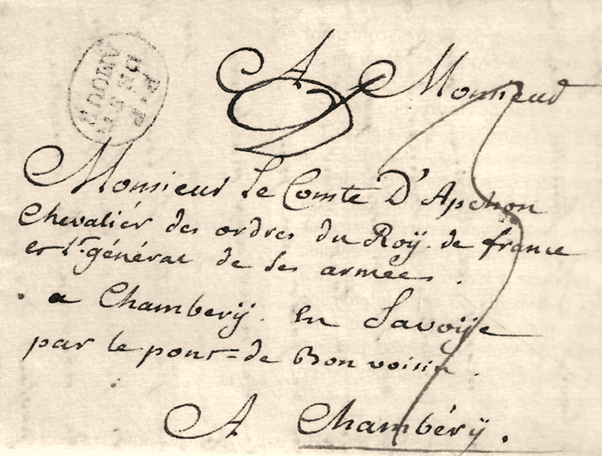 P·P
DE ST
AMOUR
A Monsieur
Monsieur le Comte D'Apchon
Chevaliér des ordres du Roÿ de france
et l.t général de ses armées.
a Chamberÿ en Savoÿe
par le pont=de Bon voisin.
A Chambérÿ.